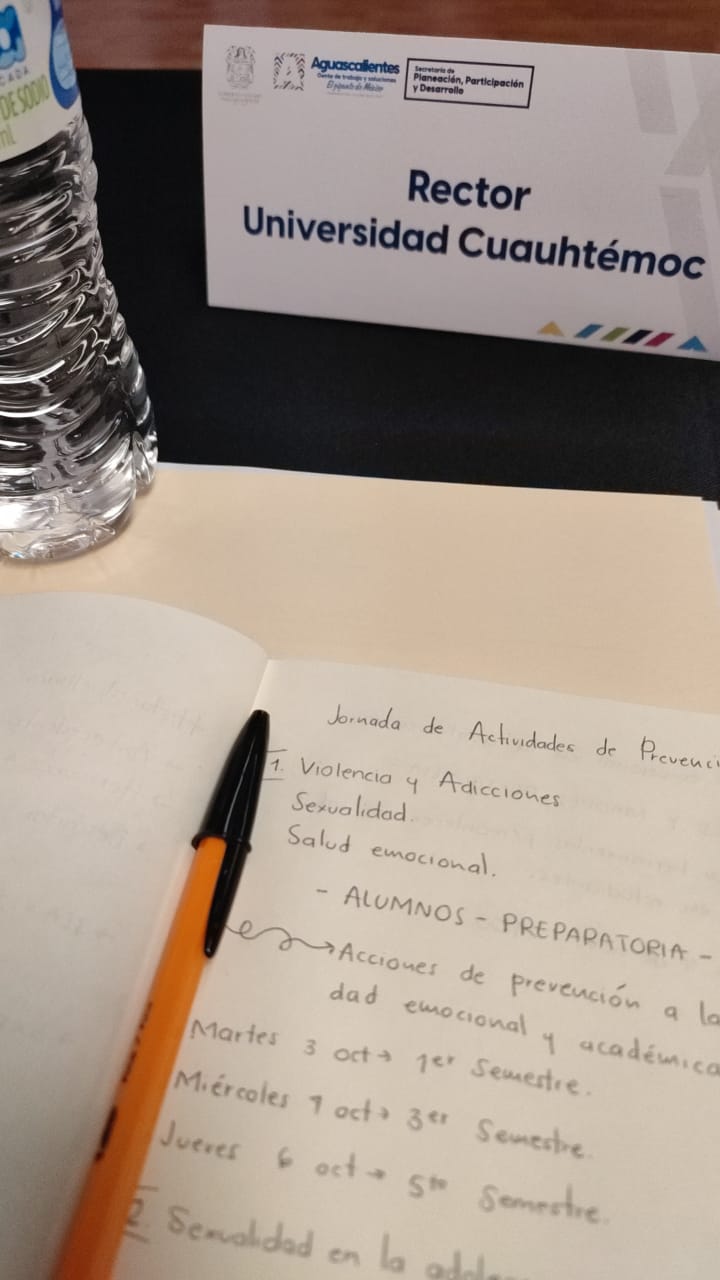 CADA
DE SODIO
mL
Aguascalientes
Gente de trabajo y soluciones
El gigante de México
Secretaría de
Planeación, Participación
y Desarrollo
Rector
Universidad Cuauhtémoc
Jornada de Actividades de Prevenci
1. Violencia y Adicciones
Sexualidad.
Salud emocional.
- ALUMNOS - PREPARATORIA -
Acciones de prevención a la
dad emocional y académica
Martes 3 oct → 1er Semestre.
Miércoles oct → 3er Semestre.
Jueves 6 oct → 5to Semestre.
2. Sexualidad en la adole